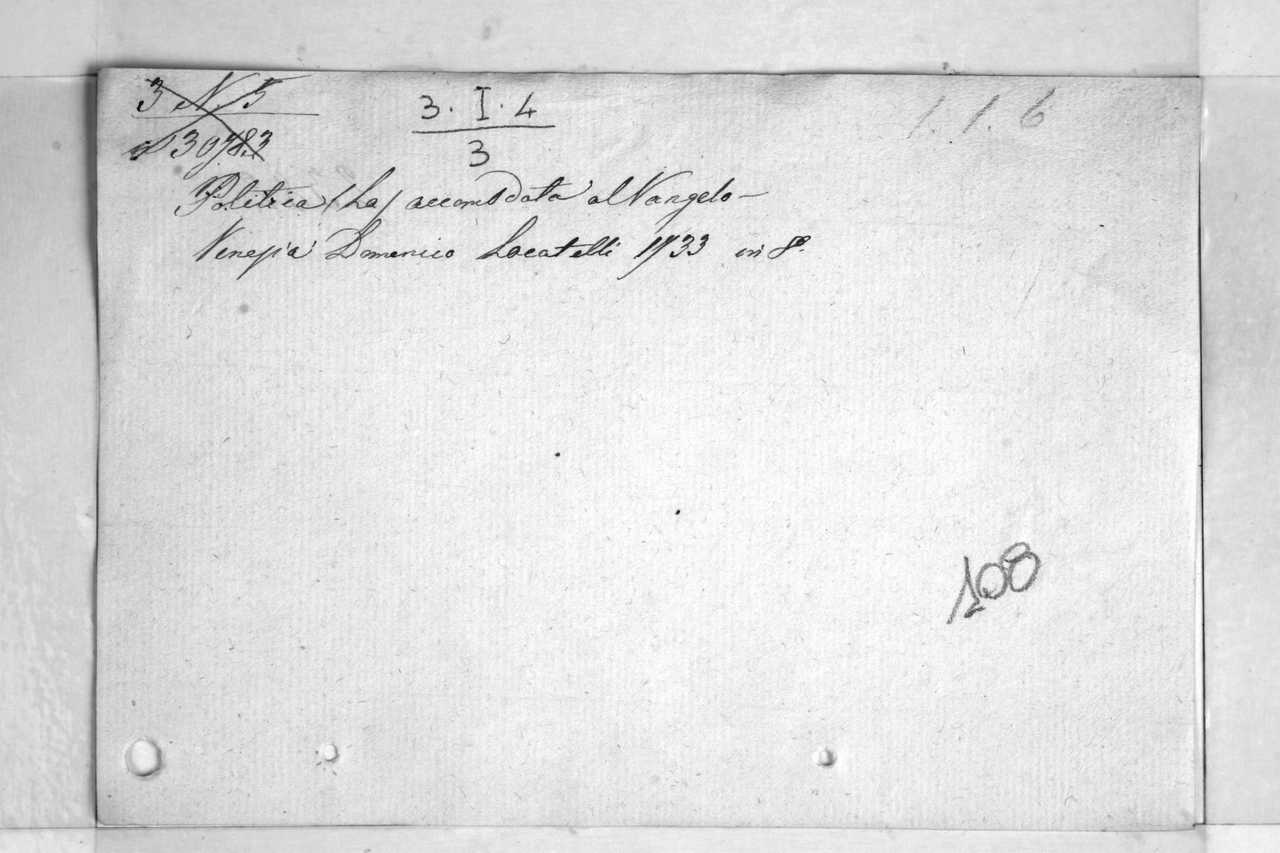 3 N. 5
3 · I · 4
3
1. 1. 6
Politica (La) accomodata al Vangelo —
Venezia Domenico Locatelli 1733 in 8º.
108